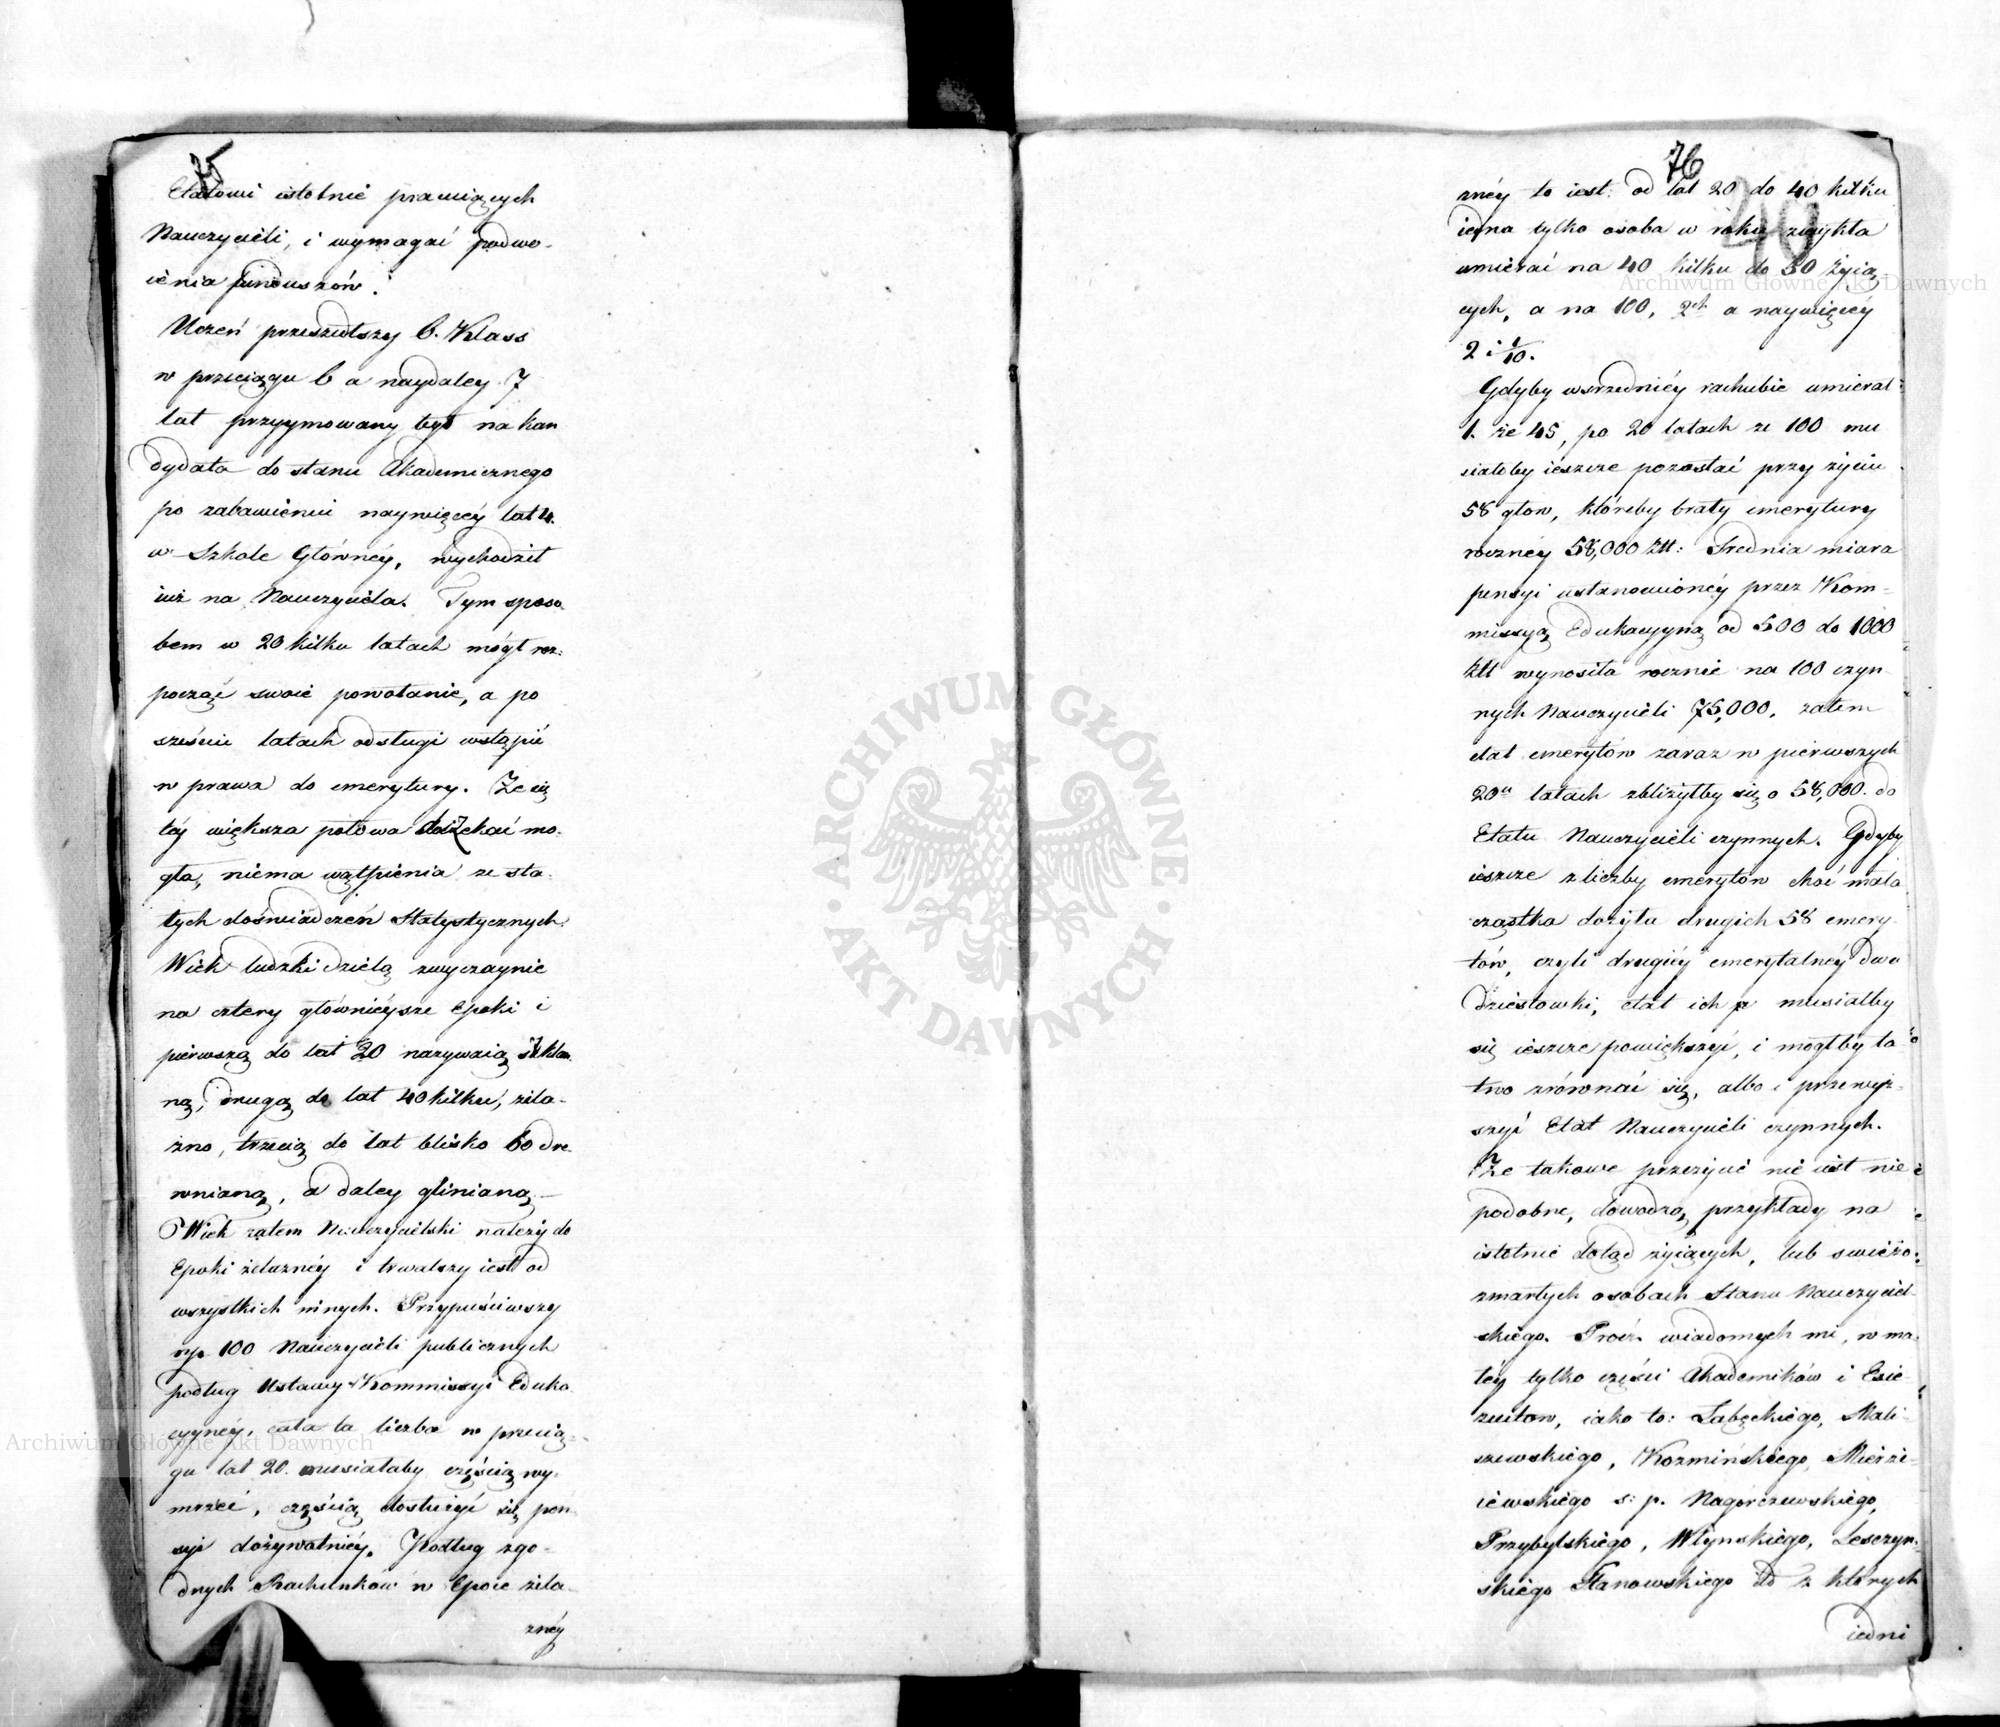 75
Etatowi istotnie pracuiących
Nauczycieli, i wymagać podwo-
ienia funduszów.
Uczeń przeszedłszy 6. Klass
w przeciągu 6 a naydaley 7
lat przyymowany był na kan
dydata do stanu Akademicznego
po zabawieniu naywięcéy lat 4.
w Szkole Główney, wychodził
iuż na Nauczyciela. Tym sposo
bem w 20 kilku latach mógł roz:
począć swoie powołanie, a po
sześciu latach odsługi wstąpić
w prawa do emerytury. Że się
téy większa połowa doczekać mo-
gła, niema wątpienia ze sta-
łych doświadczeń Statystycznych.
Wiek ludzki dzielą zwyczaynie
na cztery główniéysze Epoki i
pierwszą do lat 20 nazywaią szklan
ną, drugą do lat 40 kilku, żela-
zno, trzecią do lat blisko 60 dre-
wnianą, a daley glinianą.—
Wiek zatem Nauczycielski należy do
Epoki żelaznéy i trwalszy iest od
wszystkich innych. Przypuściwszy
np. 100 Nauczycieli publicznych
podług Ustawy Kommissyi Eduka-
cyynéy, cała ta liczba w przecią-
gu lat 20. musiałaby częścią wy-
mrzeć, częścią dosłużyć się pen-
syi dożywotniéy. Podług zgo-
dnych Rachunków w Epoce żela-
znéy
76
40
znéy to iest: od lat 20 do 40 kilku
iedna tylko osoba w roku zwykła
umierać na 40 kilku do 50 żyią
cych, a na 100, 2ch a naywięcéy
2 i 1/10.
Gdyby wsrzedniéy rachubie umierał
1. ze 45, po 20 latach ze 100 mu
siałoby ieszcze pozostać przy życiu
58 głow, któreby brały emerytury
roczney 58,000 Złł: Srednia miara
pensyi ustanowionéy przez Kom-
missyą Edukacyyną od 500 do 1000
Złł wynosiła rocznie na 100 czyn-
nych Nauczycieli 75,000. zatem
etat emerytów zaraz w pierwszych
20u latach zbliżyłby się o 58,000. do
Etatu Nauczycieli czynnych. Gdyby
ieszcze z liczby emerytów choć mała
cząstka dożyła drugich 58 emery-
tów, czyli drugiéy emerytalnéy dwu
dziestowki, etat ich musiałby
się ieszcze powiększyć, i mógłby ła-
two zrównać się, albo i przewyż-
szyć Etat Nauczycieli czynnych.
Że takowe przeżycie nie iest nie
podobne, dowodzą przykłady na
istotnie dotąd żyiących, lub swieżo
zmarłych osobach Stanu Nauczyciel-
skiego. Prócz wiadomych mi, w ma-
łéy tylko części Akademików i Exie-
zuitow, iako to: Łabęckiego, Mali-
szewskiego, Kozmińskiego, Mierże-
iewskiego s: p. Nagórczewskiego,
Przybylskiego, Włynskiego, Leszczyn-
skiego Stanowskiego z których
iedni
ARCHIWUM GŁÓWNE
AKT DAWNYCH
Archiwum Główne Akt Dawnych
Archiwum Główne Akt Dawnych